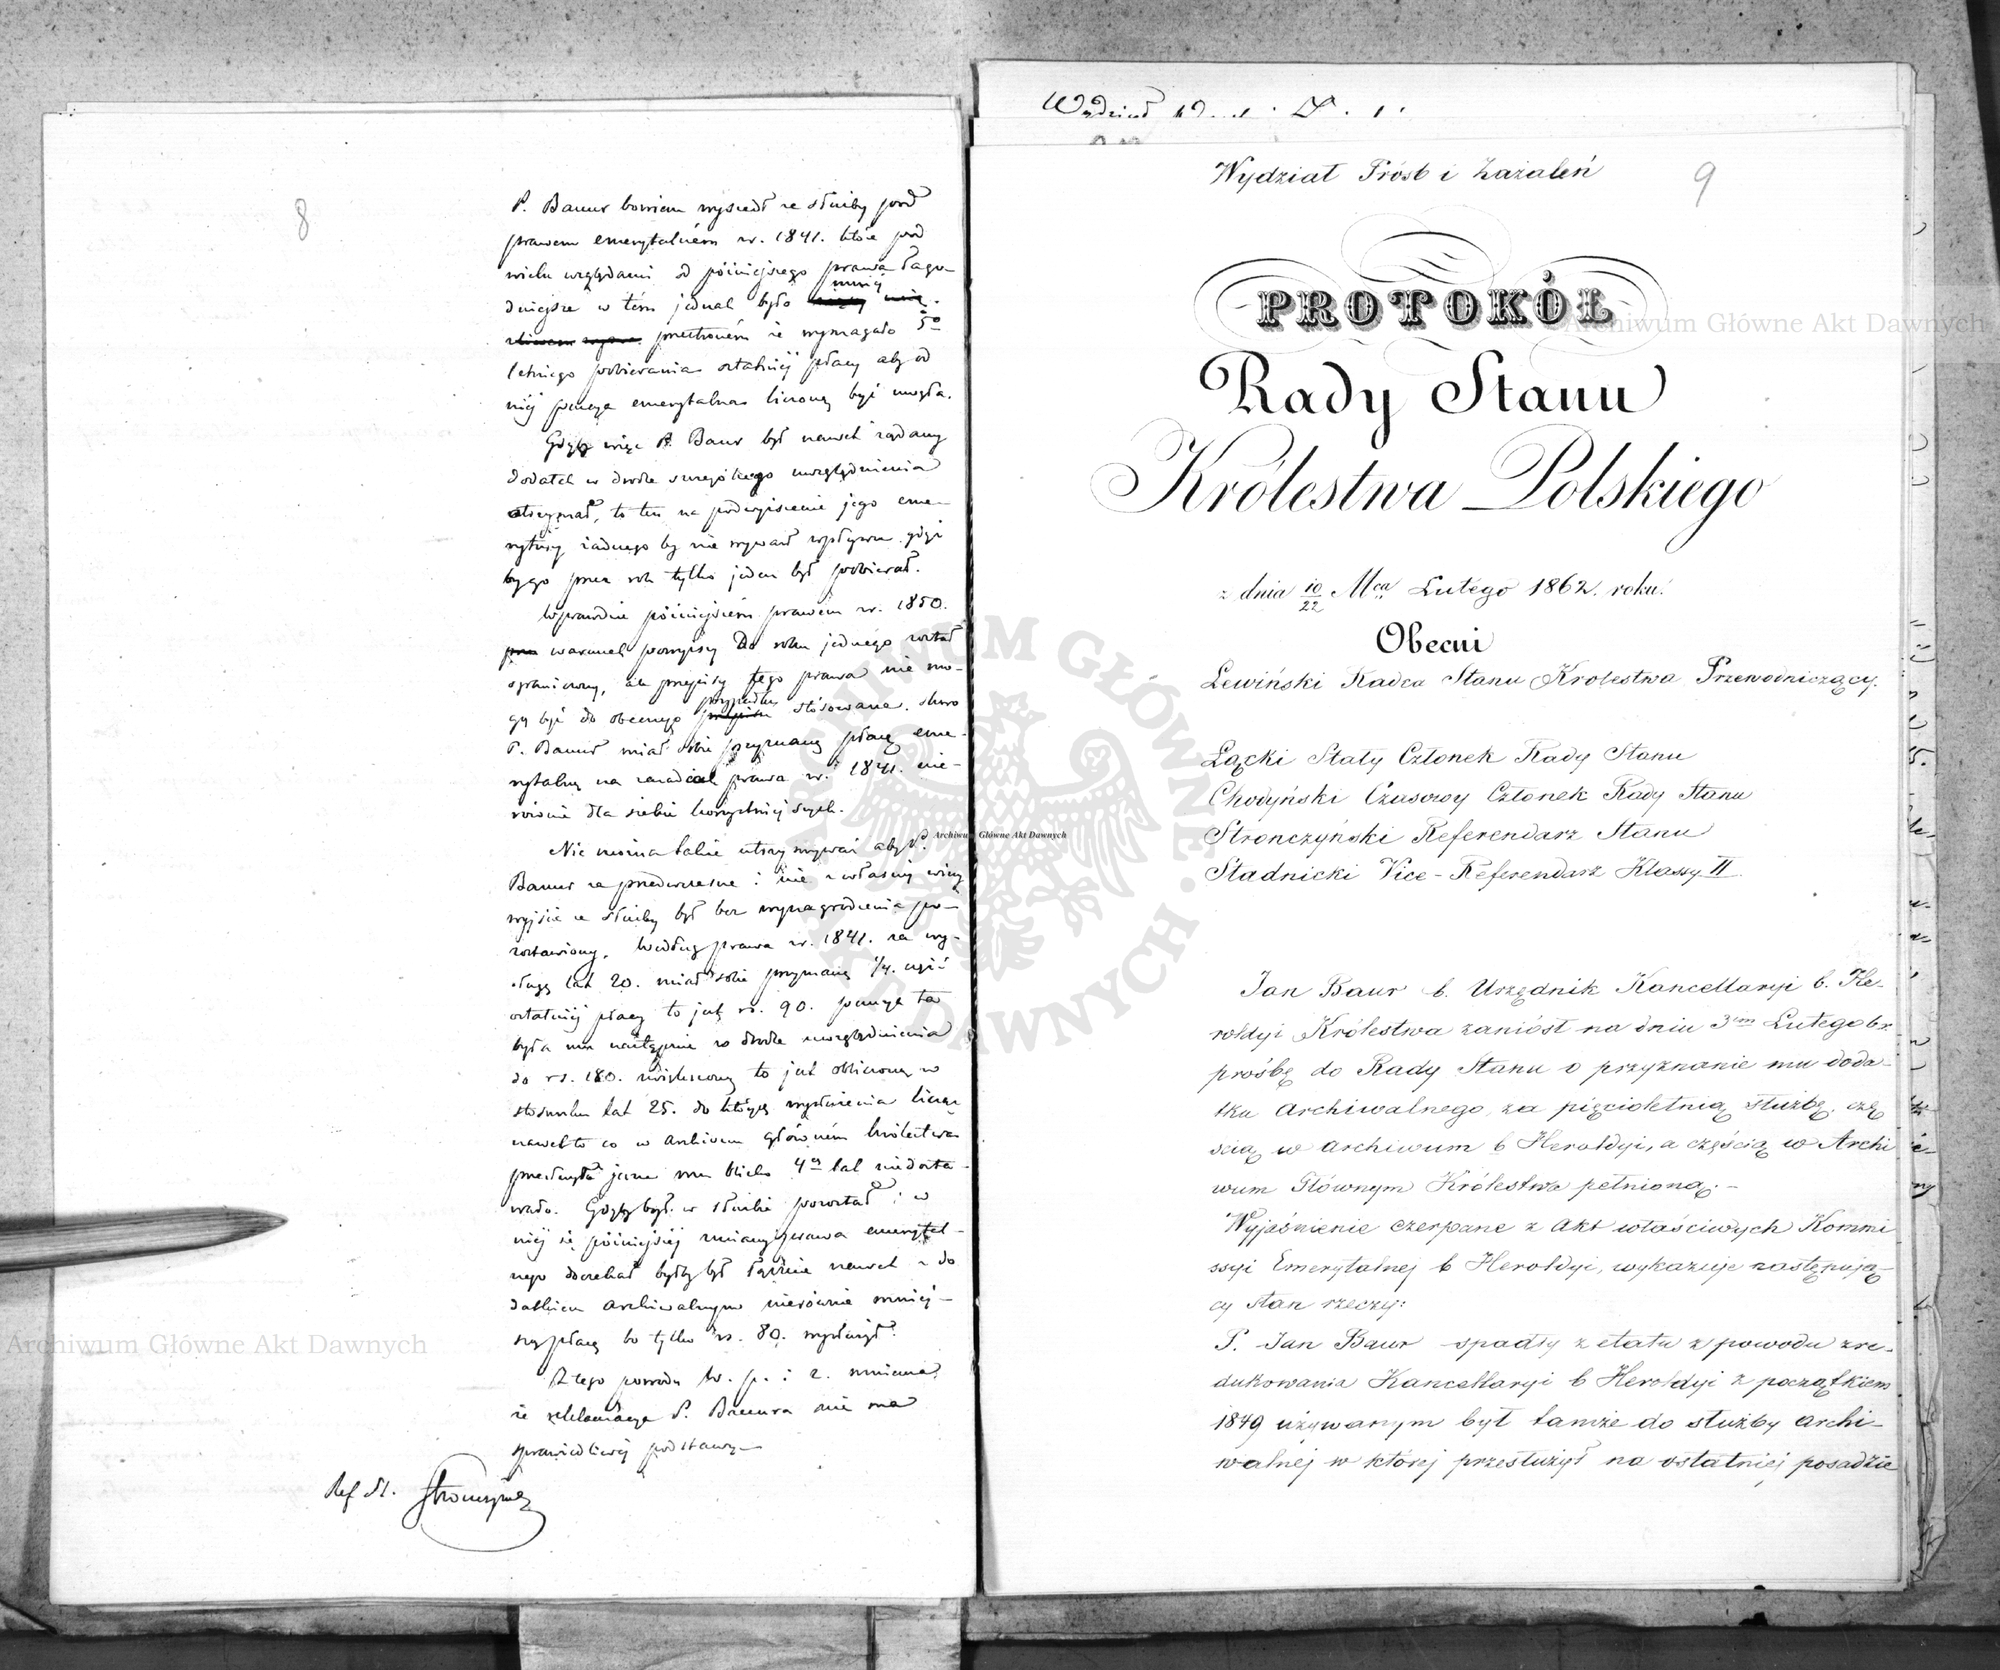 8
P. Bauer bowiem wyszedł ze służby pod
prawem emerytalném r. 1841. które pod
wielu względami od późniejszego prawa łago-
dniejsze w tém jednak było mniéj
przestroném że wymagało 5o
letniego pobierania ostatniéj płacy aby od
niéj pensya emerytalna liczoną być mogła.
Gdyby więc P. Baur był nawet żądany
dodatek w drodze szczególnego uwzględnienia
otrzymał, to ten na podwyższenie jego eme-
rytury żadnego by nie wywarł wpływu gdyż
by go przez rok tylko jeden był pobierał.
Wprawdzie późniejszém prawem r. 1850.
warunek powyższy do roku jednego został
ograniczony, ale przepisy tego prawa nie mo-
gą być do obecnego przypadku stósowane, skoro
P. Bauer miał sobie przyznaną płacę eme-
rytalną na zasadach prawa r. 1841. nie-
równie dla siebie korzystniejszych.
Nie można także utrzymywać aby P.
Bauer za przedwczesne i nie z własnéj winy
wyjście ze służby był bez wynagrodzenia po-
zostawiony. Według prawa r. 1841. za wy-
sługę lat 20. miał sobie przyznaną 1/4. część
ostatniéj płacy to jest rs. 90. pensya ta
była mu następnie w drodze uwzględnienia
do rs. 180. zwiększoną to jest obliczoną w
stosunku lat 25. do których wysłużenia licząc
nawet to co w Archiwum głównem Królestwa
przesłużył jeszcze mu blisko 4ch lat niedosta-
wało. Gdyby był w służbie pozostał i w
niéj się późniejszéj zmiany prawa emerytal-
nego doczekał byłby był łącznie nawet z do
datkiem archiwalnym nierównie mniéj-
szą płacę bo tylko rs. 80. wysłużył.
Z tego powodu W. p. i z. mniema,
że reklamacya P. Bauera nie ma
sprawiedliwéj podstawy.
Ref. St. Stronczyński
9
Wydział Próśb i Zażaleń
PROTOKÓŁ
Rady Stanu
Królestwa Polskiego
z dnia 10/22 Mca Lutego 1862. roku.
Obecni
Lewiński Radca Stanu Królestwa Przewodniczący.
Łącki Stały Członek Rady Stanu
Chodyński Czasowy Członek Rady Stanu
Stronczyński Referendarz Stanu
Stadnicki Vice-Referendarz Klassy II.
Jan Baur b. Urzędnik Kancellaryi b. He-
roldyi Królestwa zaniósł na dniu 3cim Lutego br.
prośbę do Rady Stanu o przyznanie mu doda-
tku archiwalnego, za pięcioletnią służbę, czę
scią w archiwum b Heroldyi, a częścią w Archi
wum Głównym Królestwa pełnioną.-
Wyjaśnienie czerpane z akt właściwych Kommi
ssyi Emerytalnej b Heroldyi, wykazuje następują-
cy stan rzeczy:
P. Jan Baur spadły z etatu z powodu zre-
dukowania Kancellaryi b Heroldyi z początkiem
1849 używanym był tamże do służby archi-
walnéj w któréj przesłużył na ostatniéj posadzie
Archiwum Główne Akt Dawnych
Archiwum Główne Akt Dawnych
Archiwum Główne Akt Dawnych
ARCHIWUM GŁÓWNE AKT DAWNYCH